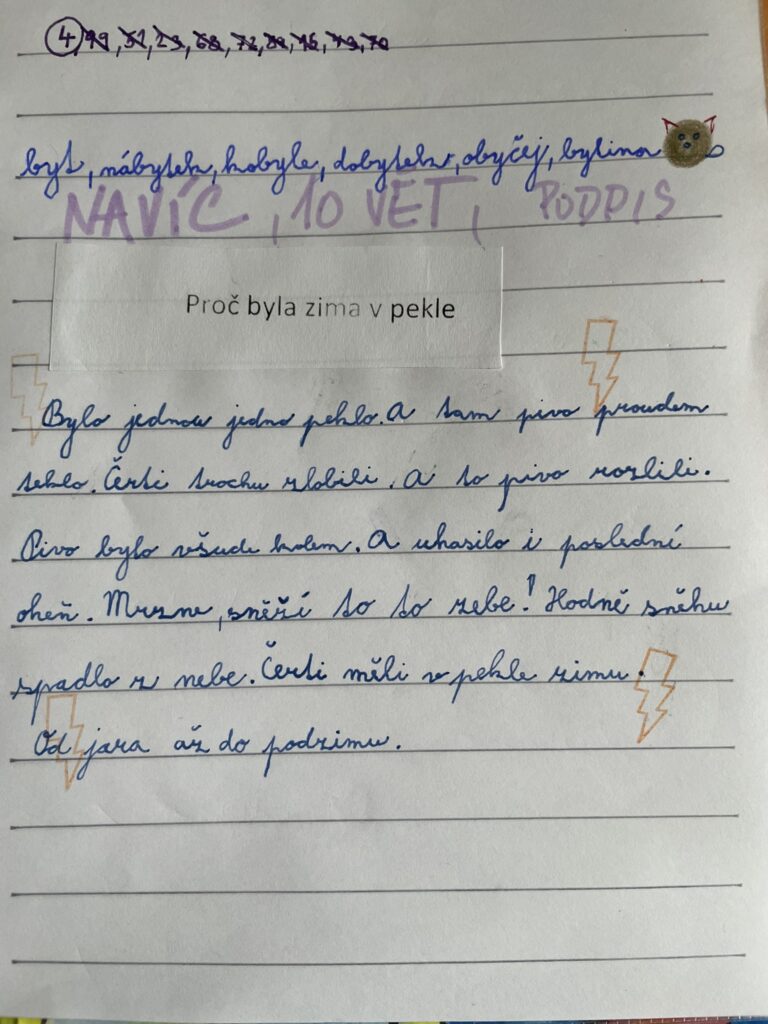 4
byt, nábytek, kobyle, dobytek, obyčej, bylina
NAVÍC, 10 VĚT, PODPIS
Proč byla zima v pekle
Bylo jednou jedno peklo. A tam pivo proudem
teklo. Čerti trochu zlobili. A to pivo rozlili.
Pivo bylo všude kolem. A uhasilo i poslední
oheň. Mrzne, sněží to to zebe! Hodně sněhu
spadlo z nebe. Čerti měli v pekle zimu.
Od jara až do podzimu.